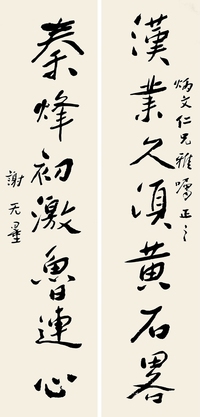 炳文仁兄雅囑正之
漢業久須黃石畧
秦烽初激魯連心
謝无量